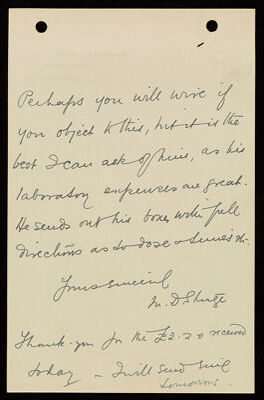 Perhaps you will wire if
you object to this, but it is the
best I can ask of him, as his
laboratory expenses are great.
He sends out his boxes with full
directions as to dose & times &c.
Yours sincerely
Thank-you for the £2-2-0 received
today — I will send
tomorrow.